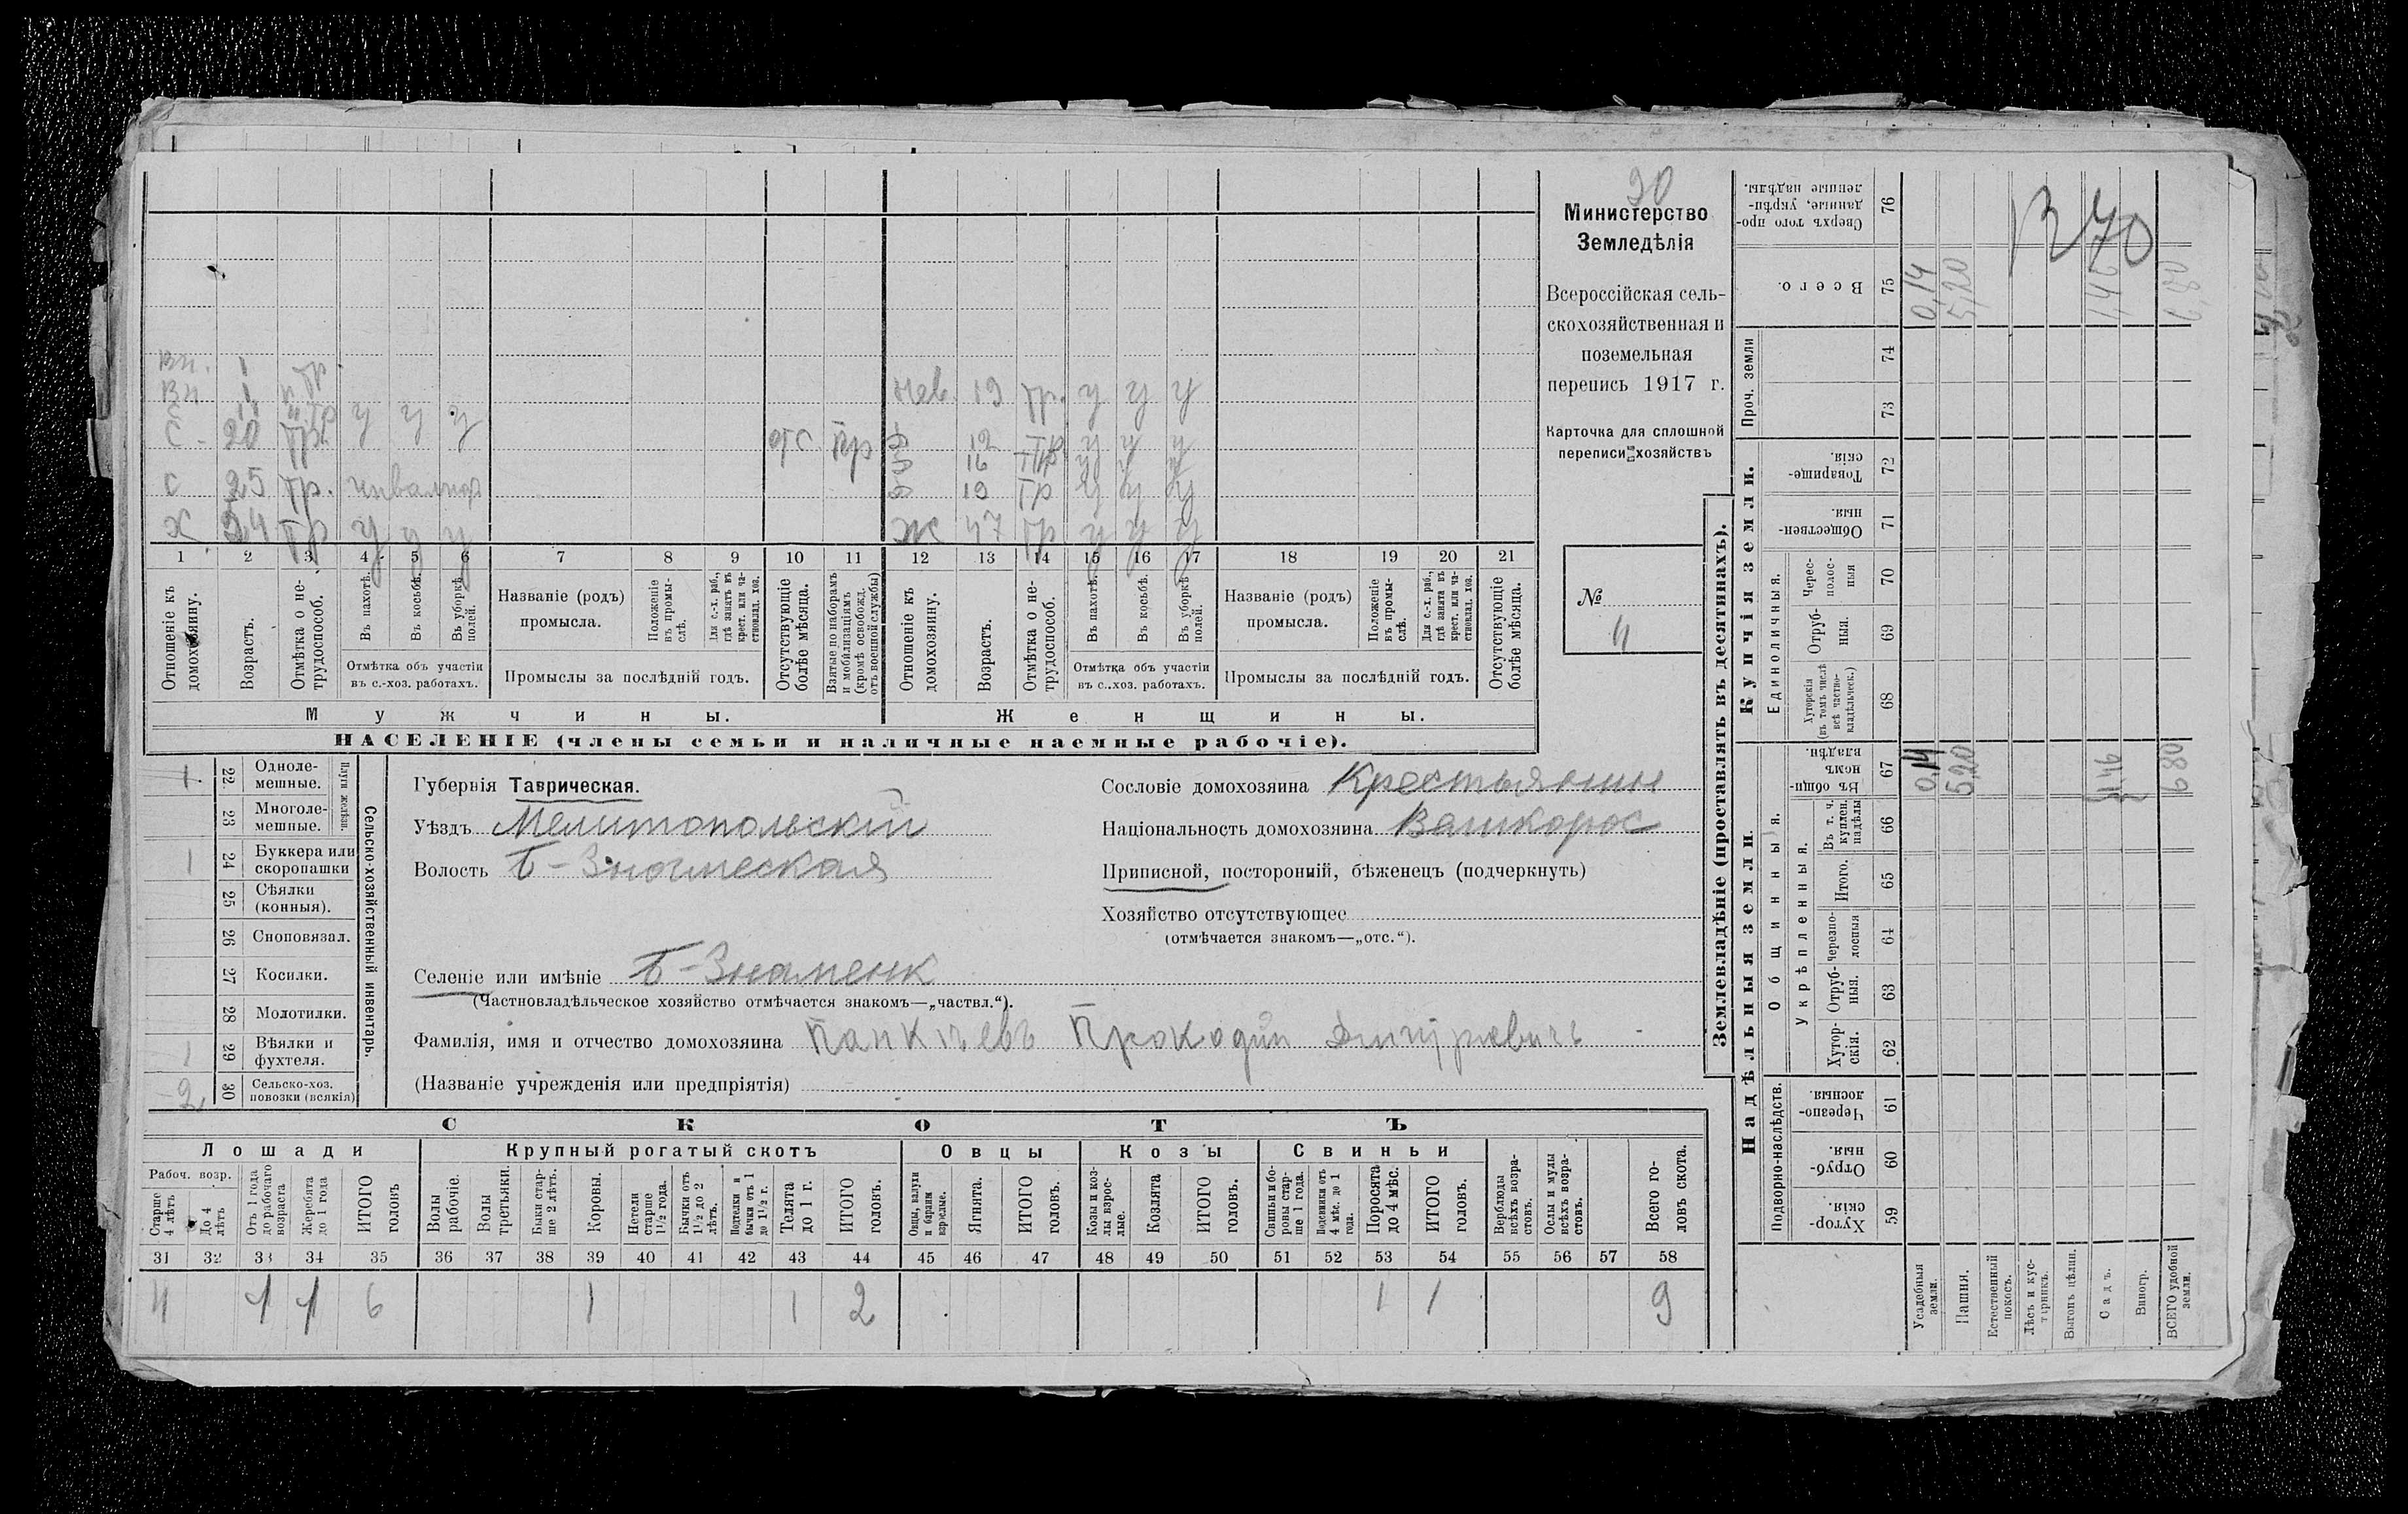 30
Министерство
Земледѣлія
Всероссійская сель-
скохозяйственная и
поземельная
перепись 1917 г.
Карточка для сплошной
переписи хозяйствъ
№
4
Вн. 1
Вн 1
С 20 тр. у у у отс
С 25 тр. инвалид
Х 54 тр у у у
нев. 19 тр. у у у
12 тр у у у
16 у у у
19 тр у у у
ж 47 тр у у у
1 2 3 4 5 6 7 8 9 10 11 12 13 14 15 16 17 18 19 20 21
Отношеніе къ домохозяину.
Возрастъ.
Отмѣтка о не-трудоспособ.
Въ пахотѣ.
Въ косьбѣ.
Въ уборкѣ полей.
Отмѣтка объ участіи
въ с.-хоз. работахъ.
Названіе (родъ)
промысла.
Положеніе въ промы-слѣ.
Для с.-х. раб., гдѣ занятъ въ крест. или ча-стновлад. хоз.
Промыслы за послѣдній годъ.
Отсутствующіе болѣе мѣсяца.
Взятые по наборамъ и мобилизаціямъ (кромѣ освобожд. отъ военной службы)
Отношеніе къ домохозяину.
Возрастъ.
Отмѣтка о не-трудоспособ.
Въ пахотѣ.
Въ косьбѣ.
Въ уборкѣ полей.
Отмѣтка объ участіи
въ с.-хоз. работахъ.
Названіе (родъ)
промысла.
Положеніе въ промы-слѣ.
Для с.-х. раб., гдѣ занята въ крест. или ча-стновлад. хоз.
Промыслы за послѣдній годъ.
Отсутствующіе болѣе мѣсяца.
Мужчины.
Женщины.
НАСЕЛЕНІЕ (члены семьи и наличные наемные рабочіе).
Сельско-хозяйственный инвентарь.
Плуги желѣзн.
1 22 Одноле-мешные.
23 Многоле-мешные.
1 24 Буккера или скоропашки
25 Сѣялки (конныя).
26 Сноповязал.
27 Косилки.
28 Молотилки.
1 29 Вѣялки и фухтеля.
2 30 Сельско-хоз. повозки (всякія)
Губернія Таврическая.
Уѣздъ Мелитопольскій
Волость Б-Знаменская
Селеніе или имѣніе Б-Знаменк
(Частновладѣльческое хозяйство отмѣчается знакомъ—„частвл.“).
Фамилія, имя и отчество домохозяина
(Названіе учрежденія или предпріятія)
Сословіе домохозяина Крестьянин
Національность домохозяина
Приписной, посторонній, бѣженецъ (подчеркнуть)
Хозяйство отсутствующее
(отмѣчается знакомъ—„отс.“).
СКОТЪ
Лошади
Крупный рогатый скотъ
Овцы
Козы
Свиньи
Рабоч. возр.
Старше 4 лѣтъ
До 4 лѣтъ
Отъ 1 года до рабочаго возраста
Жеребята до 1 года
ИТОГО головъ
Волы рабочіе.
Волы третьяки.
Быки стар-ше 2 лѣтъ.
Коровы.
Нетели старше 1½ года.
Бычки отъ 1½ до 2 лѣтъ.
Подтелки и бычки отъ 1 до 1½ г.
Телята до 1 г.
ИТОГО головъ.
Овцы, валухи и бараны взрослые.
Ягнята.
ИТОГО головъ.
Козы и коз-лы взрос-лые.
Козлята
ИТОГО головъ.
Свиньи и бо-ровы стар-ше 1 года.
Подсвинки отъ 4 мѣс. до 1 года.
Поросята до 4 мѣс.
ИТОГО головъ.
Верблюды всѣхъ возра-стовъ.
Ослы и мулы всѣхъ возра-стовъ.
Всего го-ловъ скота.
31 32 33 34 35 36 37 38 39 40 41 42 43 44 45 46 47 48 49 50 51 52 53 54 55 56 57 58
4 1 1 6 1 1 2 1 1 9
Землевладѣніе (проставлять въ десятинахъ).
Надѣльныя земли.
Купчія земли.
Проч. земли
Подворно-наслѣдств.
Общинныя.
Укрѣпленныя.
Единоличныя.
Хутор-скія. 59
Отруб-ныя. 60
Черезпо-лосныя. 61
Хутор-скія. 62
Отруб-ныя. 63
Черезпо-лосныя 64
Итого. 65
Въ т. ч. куплен. надѣлы 66
Въ общи-номъ владѣн. 67
Хуторскія (въ томъ числѣ всѣ частно-владѣльческ.) 68
Отруб-ныя. 69
Черес-полос-ныя 70
Обществен-ныя. 71
Товарище-скія. 72
73
74
Всего. 75
Сверхъ того про-данные, укрѣп-ленные надѣлы. 76
Усадебныя земли. 0,14 0,14
Пашня. 5,20 5,20
Естественный покосъ.
Лѣсъ и кус-тарникъ.
Выгонъ цѣлин.
Садъ. 1,46 1,46
Виногр.
ВСЕГО удобной земли. 6 80 6,80
70